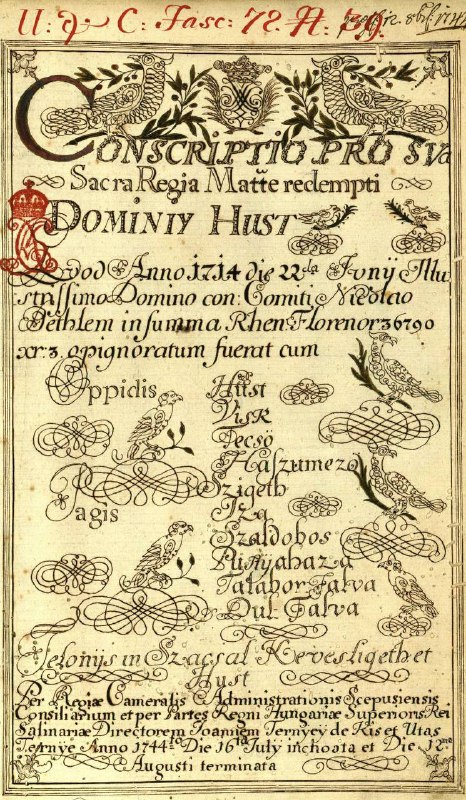 U. et C. Fasc: 72. A. 79.
CONSCRIPTIO PRO SUA
Sacra Regia Matte redempti
DOMINIY HUST
Quod Anno 1714 die 22da Juny Illu
strissimo Domino con: Comiti Nicolao
Bethlem in summa Rhen. Florenor 36790
xr 3. opignoratum fuerat cum
Oppidis Hust
Visk
Tecsö
Haszumezo
Pagis Szigeth
Iza
Szaldobos
Husztyahaza
Talabor Falva
Dul Falva
Telonijs in Szacsal Kevesligeth et
Hust
Per Regiæ Cameralis Administrationis Scepusiensis
Consiliarium et per Partes Regni Hungariæ Superioris Rei
Salinariæ Directorem Joannem Ternyey de Kis et Utas
Ternye Anno 1744to Die 16ta July inchoata et Die 12mo
Augusti terminata